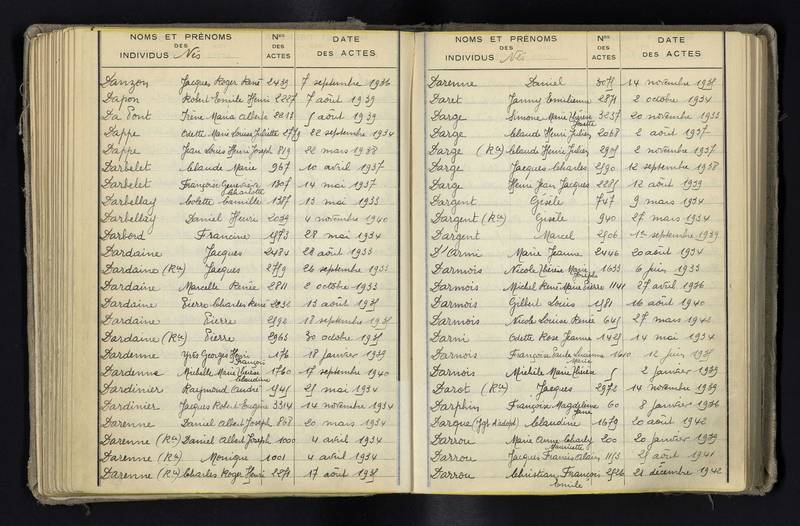 NOMS ET PRÉNOMS DES INDIVIDUS Nés Nos DES ACTES DATE DES ACTES
Danzon Jacques Roger René 2439 7 septembre 1936
Dapon Robert Emile Henri 2227 7 août 1939
Da Pont Irène Maria Alberte 2213 1 août 1939
Dappe Odette Marie Louise Juliette 2779 22 septembre 1934
Dappe Jean Louis Henri Joseph 819 22 mars 1938
Darbelet Claude Marie 967 10 avril 1937
Darbelet Françoise Geneviève Charlotte 1307 14 mai 1937
Darbellay Colette Camille 1387 13 mai 1933
Darbellay Daniel Henri 2039 4 novembre 1940
Darbord Francine 1573 28 mai 1934
Dardaine Jacques 2484 28 août 1933
Dardaine (Ron) Jacques 2719 26 septembre 1933
Dardaine Marcelle Renée 2811 2 octobre 1933
Dardaine Pierre Charles René 2032 13 août 1935
Dardaine Pierre 2592 18 septembre 1935
Dardaine (Ron) Pierre 2965 30 octobre 1935
Dardenne Yves Georges Henri François 176 18 janvier 1939
Dardenne Michelle Marie Thérèse Claudine 1760 17 septembre 1940
Dardinier Raymond André 1545 25 mai 1934
Dardinier Jacques Robert Eugène 3314 14 novembre 1934
Darenne Daniel Albert Joseph 868 20 mars 1934
Darenne (Ron) Daniel Albert Joseph 1000 4 avril 1934
Darenne (Ron) Monique 1001 4 avril 1934
Darenne (Ron) Charles Roger Henri 2271 17 août 1935
NOMS ET PRÉNOMS DES INDIVIDUS Nés Nos DES ACTES DATE DES ACTES
Darenne Daniel 3071 14 novembre 1935
Daret Janny Emilienne 2871 2 octobre 1934
Darge Simone Marie Thérèse Josette 3257 20 novembre 1933
Darge Claude Henri Julien 2068 2 août 1937
Darge (Ron) Claude Henri Julien 2905 2 novembre 1937
Darge Jacques Charles 2590 12 septembre 1938
Darge Henri Jean Jacques 2285 12 août 1939
Dargent Gisèle 747 9 mars 1934
Dargent (Ron) Gisèle 940 27 mars 1934
Dargent Marcel 2506 1er septembre 1939
D'Armi Marie Jeanne 2446 20 août 1934
Darmois Nicole Thérèse Marie 1633 6 juin 1933
Darmois Michel René Marie Pierre 1141 27 avril 1936
Darmois Gilbert Louis 1581 16 août 1940
Darmois Nicole Louise Renée 645 27 mars 1942
Darni Odette Rose Jeanne 1425 14 mai 1934
Darnois Françoise Paule Lucienne Marie 1610 12 juin 1935
Darnois Michèle Marie Thérèse 5 2 janvier 1939
Darot (Ron) Jacques 2972 14 novembre 1939
Darphin Françoise Magdeleine Jane 60 8 janvier 1936
Darque (Jgt d'adopt) Claudine 1679 20 août 1942
Darrou Marie Anne Charly Henriette 200 20 janvier 1939
Darrou Jacques Francis Alain 1153 25 août 1941
Darrou Christian François Emile 2526 21 décembre 1942